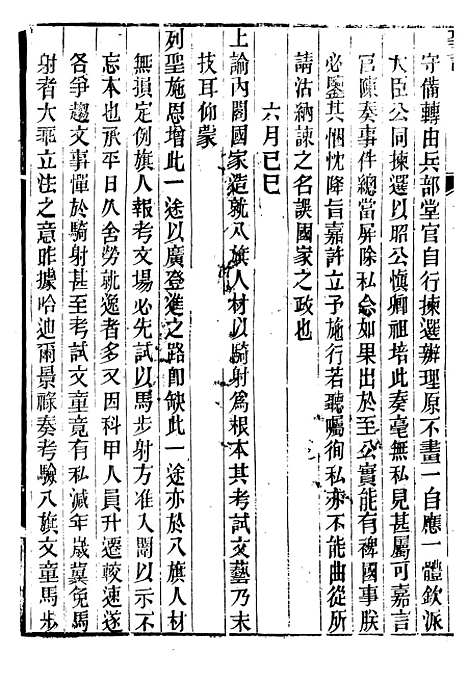 守備轉由兵部堂官自行揀選辦理原不畫一自應一體欽派
大臣公同揀選以昭公愼卿祖培此奏毫無私見甚屬可嘉言
官陳奏事件總當屏除私念如果出於至公實能有裨國事朕
必鑒其悃忱降旨嘉許立予施行若聽囑徇私亦不能曲從所
請沽納諫之名誤國家之政也
六月己巳
上諭內閣國家造就八旗人材以騎射爲根本其考試文藝乃末
技耳仰蒙
列聖施恩增此一途以廣登進之路卽缺此一途亦於八旗人材
無損定例旗人報考文場必先試以馬步射方准入闈以示不
忘本也承平日久舍勞就逸者多又因科甲人員升遷較速遂
各爭趨文事憚於騎射甚至考試文童竟有私減年歲冀免馬
射者大乖立法之意昨據哈迪爾景祿奏考驗八旗文童馬步